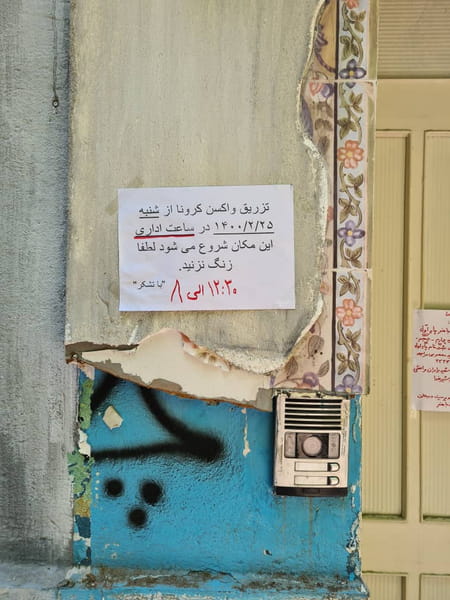 تزریق واکسن کرونا از شنبه
۱۴۰۰/۲/۲۵ در ساعت اداری
این مکان شروع می شود لطفا
زنگ نزنید.
"با تشکر"
۸ الی ۱۲:۳۰